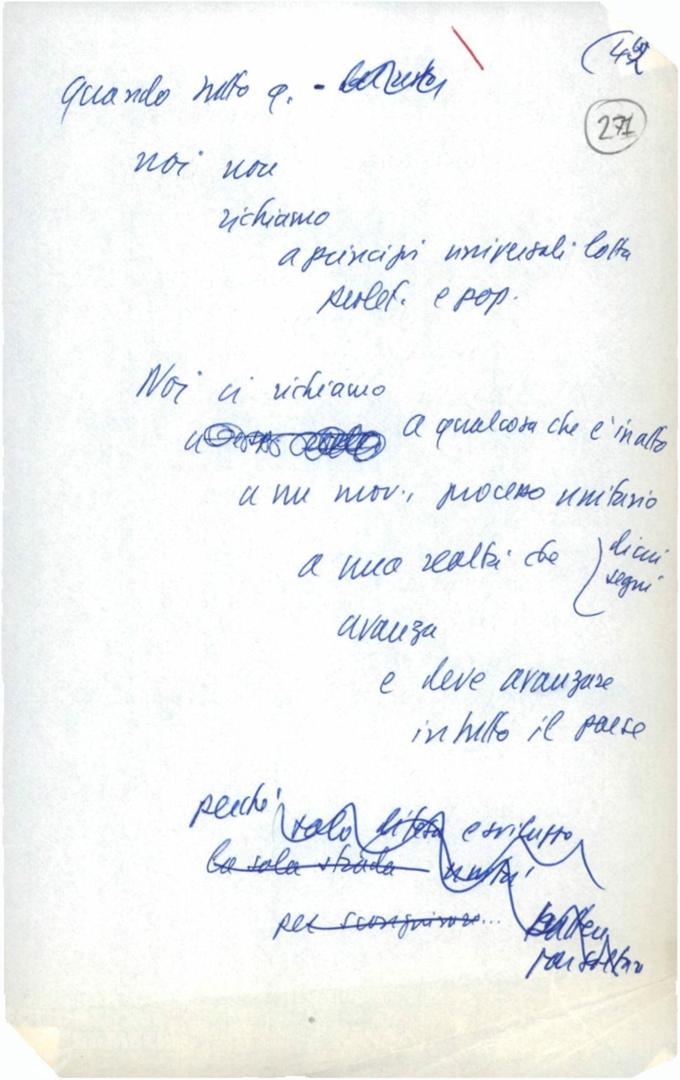 (42
271
quando tutto q. -
noi non
richiamo
a principi universali lotta
prolet. e pop.
Noi ci richiamo
a qualcosa che è in atto
a un mov., processo unitario
a una realtà che
di cui
segni
avanza
e deve avanzare
in tutto il paese
perché
solo difesa e sviluppo
la sola strada unità
per scongiurare...